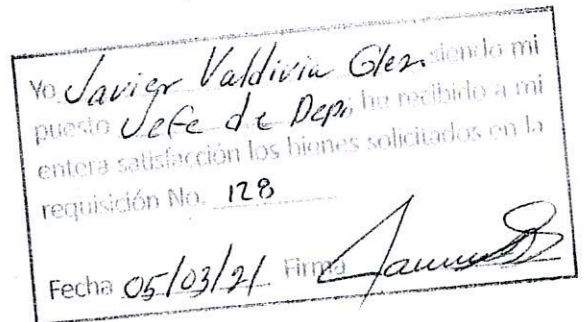 Yo Javier Valdivia Glez. siendo mi
puesto Jefe de Dep. he recibido a mi
entera satisfacción los bienes solicitados en la
requisición No. 128
Fecha 05/03/21 Firma